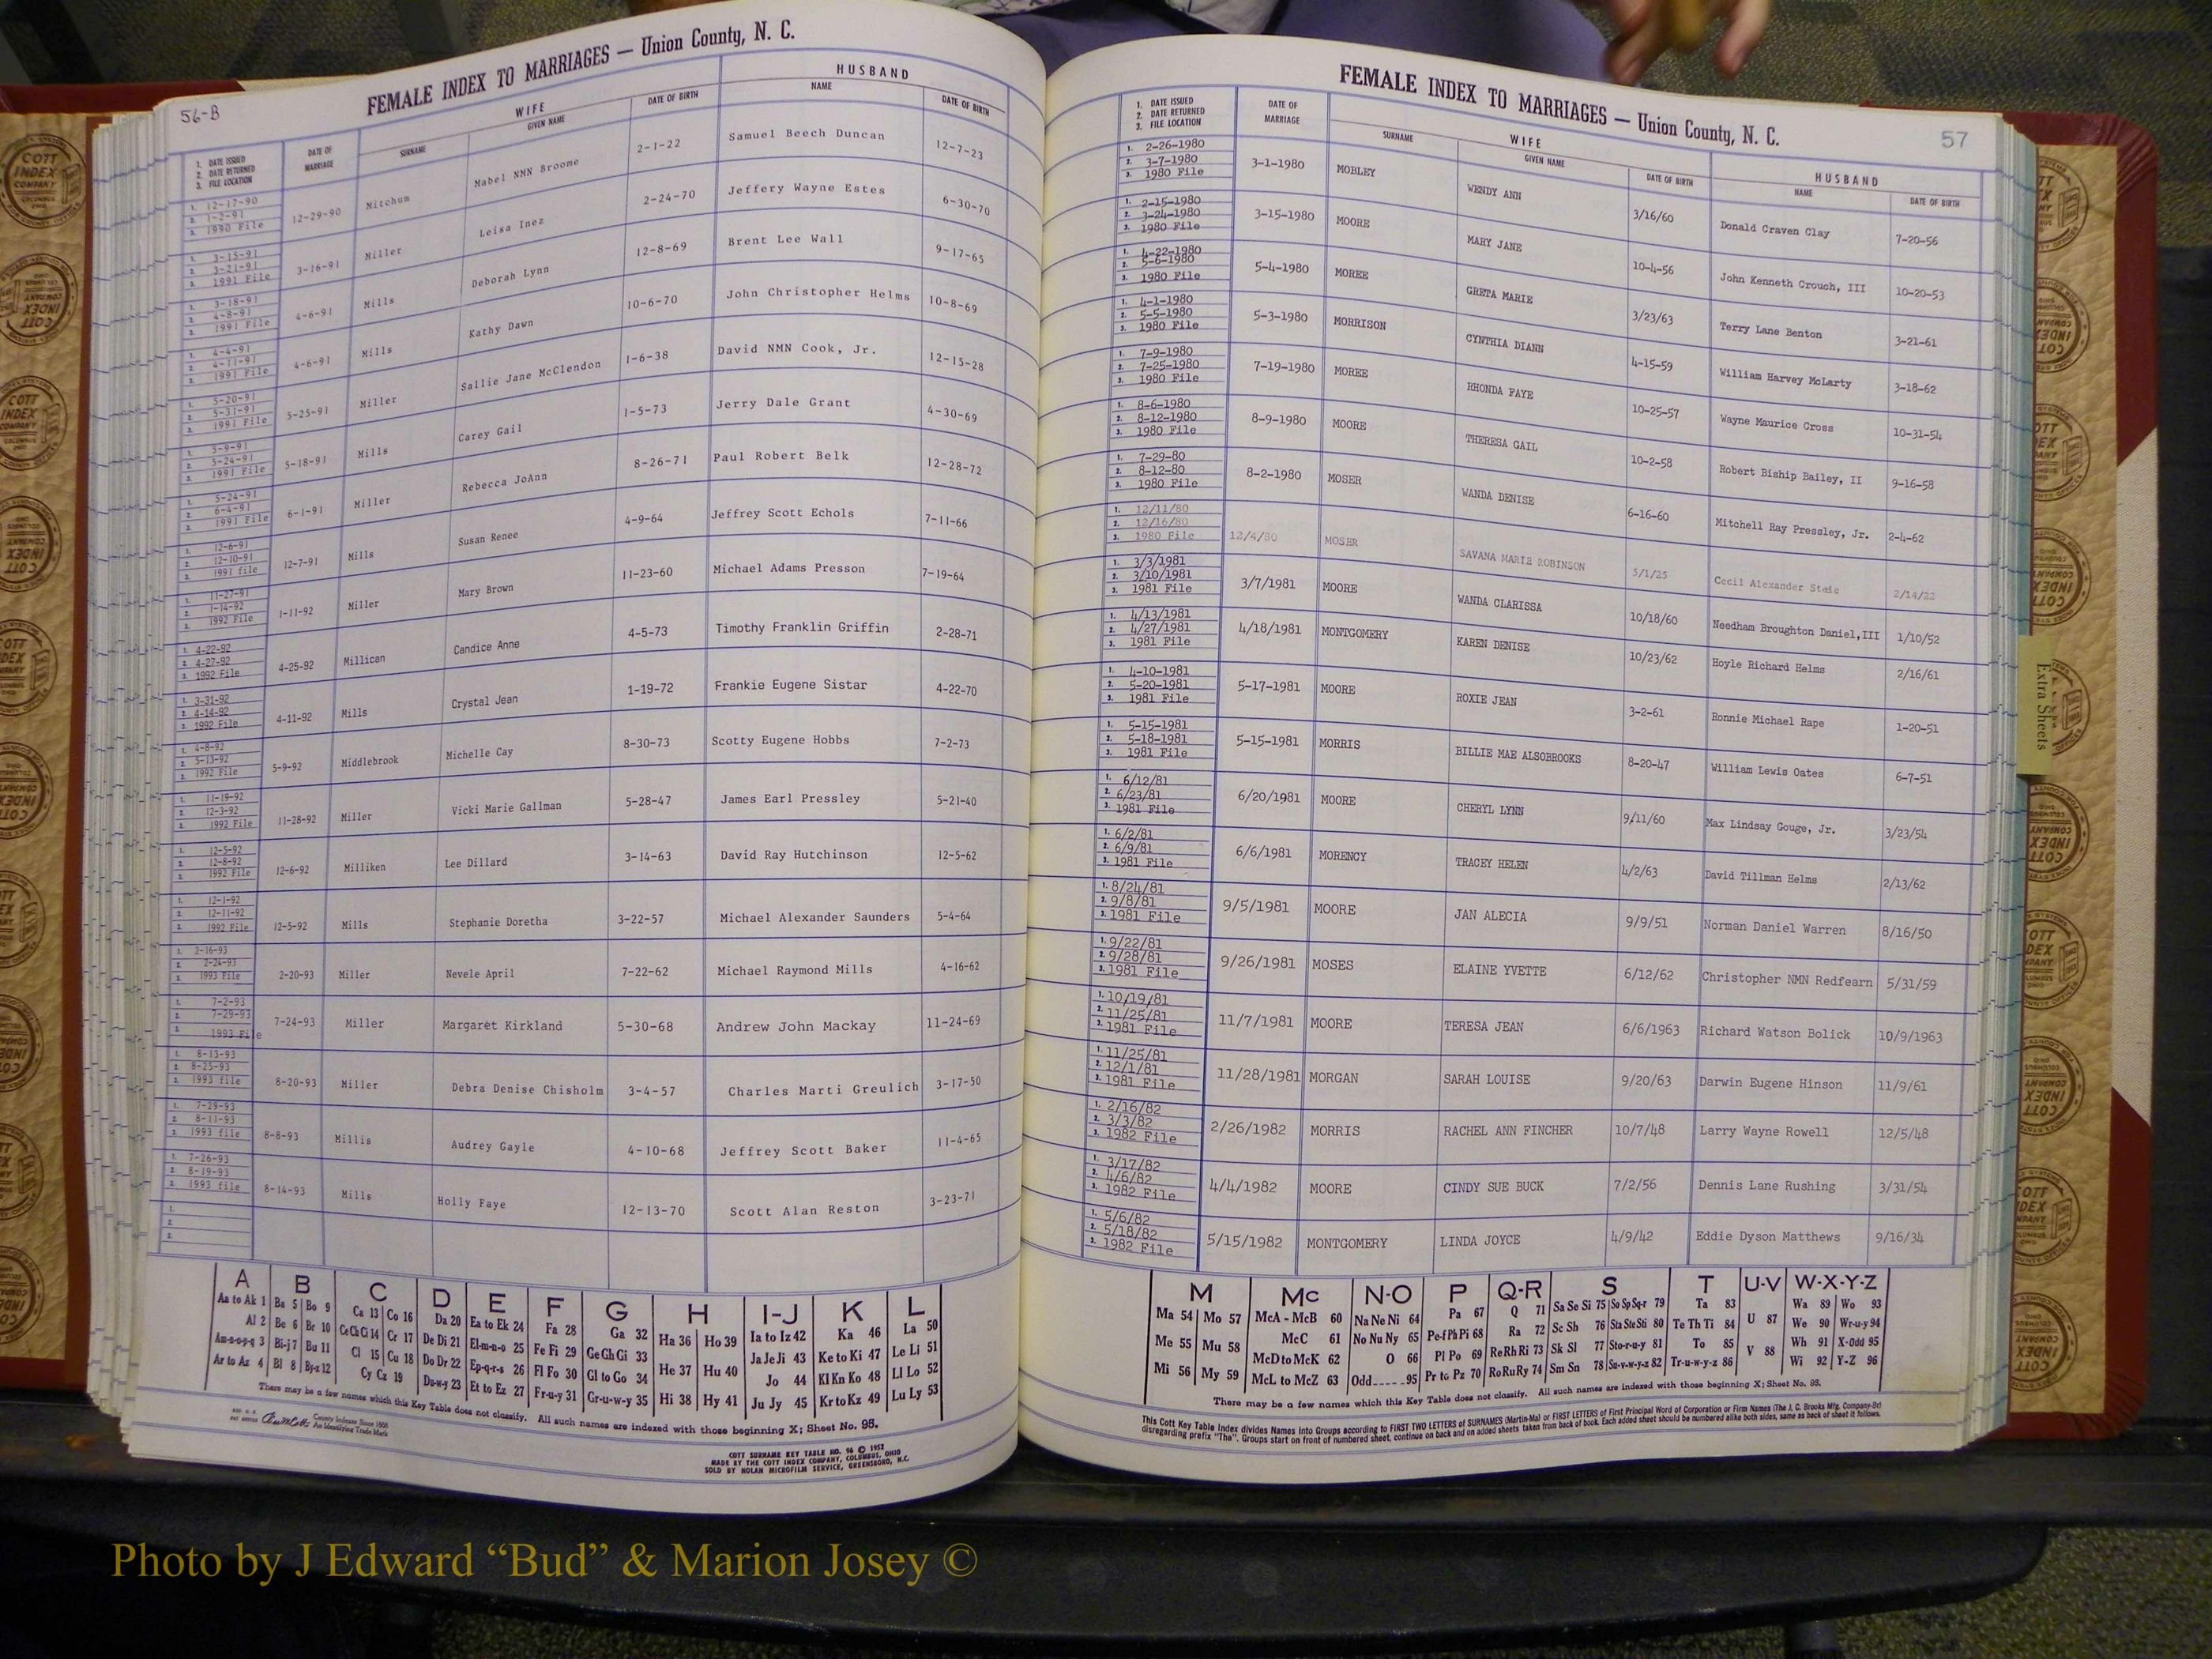 56-B
FEMALE INDEX TO MARRIAGES — Union County, N. C.
1. DATE ISSUED 2. DATE RETURNED 3. FILE LOCATION
DATE OF MARRIAGE
WIFE
SURNAME GIVEN NAME DATE OF BIRTH
HUSBAND
NAME DATE OF BIRTH
1. 12-17-90 2. 1-2-91 3. 1990 File 12-29-90 Mitchum Mabel NMN Broome 2-1-22 Samuel Beech Duncan 12-7-23
1. 3-15-91 2. 3-21-91 3. 1991 File 3-16-91 Miller Leisa Inez 2-24-70 Jeffery Wayne Estes 6-30-70
1. 3-18-91 2. 4-8-91 3. 1991 File 4-6-91 Mills Deborah Lynn 12-8-69 Brent Lee Wall 9-17-65
1. 4-4-91 2. 4-11-91 3. 1991 File 4-6-91 Mills Kathy Dawn 10-6-70 John Christopher Helms 10-8-69
1. 5-20-91 2. 5-31-91 3. 1991 File 5-25-91 Miller Sallie Jane McClendon 1-6-38 David NMN Cook, Jr. 12-15-28
1. 5-9-91 2. 5-24-91 3. 1991 File 5-18-91 Mills Carey Gail 1-5-73 Jerry Dale Grant 4-30-69
1. 5-24-91 2. 6-4-91 3. 1991 File 6-1-91 Miller Rebecca JoAnn 8-26-71 Paul Robert Belk 12-28-72
1. 12-6-91 2. 12-10-91 3. 1991 file 12-7-91 Mills Susan Renee 4-9-64 Jeffrey Scott Echols 7-11-66
1. 11-27-91 2. 1-14-92 3. 1992 File 1-11-92 Miller Mary Brown 11-23-60 Michael Adams Presson 7-19-64
1. 4-22-92 2. 4-27-92 3. 1992 File 4-25-92 Millican Candice Anne 4-5-73 Timothy Franklin Griffin 2-28-71
1. 3-31-92 2. 4-14-92 3. 1992 File 4-11-92 Mills Crystal Jean 1-19-72 Frankie Eugene Sistar 4-22-70
1. 4-8-92 2. 5-13-92 3. 1992 File 5-9-92 Middlebrook Michelle Cay 8-30-73 Scotty Eugene Hobbs 7-2-73
1. 11-19-92 2. 12-3-92 3. 1992 File 11-28-92 Miller Vicki Marie Gallman 5-28-47 James Earl Pressley 5-21-40
1. 12-5-92 2. 12-8-92 3. 1992 File 12-6-92 Milliken Lee Dillard 3-14-63 David Ray Hutchinson 12-5-62
1. 12-1-92 2. 12-11-92 3. 1992 File 12-5-92 Mills Stephanie Doretha 3-22-57 Michael Alexander Saunders 5-4-64
1. 2-16-93 2. 2-24-93 3. 1993 File 2-20-93 Miller Nevele April 7-22-62 Michael Raymond Mills 4-16-62
1. 7-2-93 2. 7-29-93 3. 1993 File 7-24-93 Miller Margaret Kirkland 5-30-68 Andrew John Mackay 11-24-69
1. 8-13-93 2. 8-25-93 3. 1993 file 8-20-93 Miller Debra Denise Chisholm 3-4-57 Charles Marti Greulich 3-17-50
1. 7-29-93 2. 8-11-93 3. 1993 file 8-8-93 Millis Audrey Gayle 4-10-68 Jeffrey Scott Baker 11-4-65
1. 7-26-93 2. 8-19-93 3. 1993 file 8-14-93 Mills Holly Faye 12-13-70 Scott Alan Reston 3-23-71
1. 2. 3.
A B C D E F G H I-J K L
Aa to Ak 1 Ba 5 Bo 9 Ca 13 Co 16 Da 20 Ea to Ek 24 Fa 28 Ga 32 Ha 36 Ho 39 Ia to Iz 42 Ka 46 La 50
Al 2 Be 6 Br 10 Ce Ch Ci 14 Cr 17 De Di 21 El-m-n-o 25 Fe Fi 29 Ge Gh Gi 33 Ja Je Ji 43 Ke to Ki 47 Le Li 51
Am-n-o-p-q 3 Bi-j 7 Bu 11 Cl 15 Cu 18 Do Dr 22 Ep-q-r-s 26 Fl Fo 30 Gl to Go 34 He 37 Hu 40 Jo 44 Kl Kn Ko 48 Ll Lo 52
Ar to Az 4 Bl 8 By-z 12 Cy Cz 19 Du-w-y 23 Et to Ez 27 Fr-u-y 31 Gr-u-w-y 35 Hi 38 Hy 41 Ju Jy 45 Kr to Kz 49 Lu Ly 53
There may be a few names which this Key Table does not classify. All such names are indexed with those beginning X; Sheet No. 95.
County Indexes Since 1888
An Identifying Trade Mark
COTT SURNAME KEY TABLE NO. 96 © 1952
MADE BY THE COTT INDEX COMPANY, COLUMBUS, OHIO
SOLD BY NOLAN MICROFILM SERVICE, GREENSBORO, N.C.
FEMALE INDEX TO MARRIAGES — Union County, N. C.
57
1. DATE ISSUED 2. DATE RETURNED 3. FILE LOCATION
DATE OF MARRIAGE
WIFE
SURNAME GIVEN NAME DATE OF BIRTH
HUSBAND
NAME DATE OF BIRTH
1. 2-26-1980 2. 3-7-1980 3. 1980 File 3-1-1980 MOBLEY WENDY ANN 3/16/60 Donald Craven Clay 7-20-56
1. 2-15-1980 2. 3-24-1980 3. 1980 File 3-15-1980 MOORE MARY JANE 10-4-56 John Kenneth Crouch, III 10-20-53
1. 4-22-1980 2. 5-6-1980 3. 1980 File 5-4-1980 MOREE GRETA MARIE 3/23/63 Terry Lane Benton 3-21-61
1. 4-1-1980 2. 5-5-1980 3. 1980 File 5-3-1980 MORRISON CYNTHIA DIANN 4-15-59 William Harvey McLarty 3-18-62
1. 7-9-1980 2. 7-25-1980 3. 1980 File 7-19-1980 MOREE RHONDA FAYE 10-25-57 Wayne Maurice Cross 10-31-54
1. 8-6-1980 2. 8-12-1980 3. 1980 File 8-9-1980 MOORE THERESA GAIL 10-2-58 Robert Biship Bailey, II 9-16-58
1. 7-29-80 2. 8-12-80 3. 1980 File 8-2-1980 MOSER WANDA DENISE 6-16-60 Mitchell Ray Pressley, Jr. 2-4-62
1. 12/11/80 2. 12/16/80 3. 1980 File 12/4/80 MOSER SAVANA MARIE ROBINSON 5/1/25 Cecil Alexander 2/14/22
1. 3/3/1981 2. 3/10/1981 3. 1981 File 3/7/1981 MOORE WANDA CLARISSA 10/18/60 Needham Broughton Daniel,III 1/10/52
1. 4/13/1981 2. 4/27/1981 3. 1981 File 4/18/1981 MONTGOMERY KAREN DENISE 10/23/62 Hoyle Richard Helms 2/16/61
1. 4-10-1981 2. 5-20-1981 3. 1981 File 5-17-1981 MOORE ROXIE JEAN 3-2-61 Ronnie Michael Rape 1-20-51
1. 5-15-1981 2. 5-18-1981 3. 1981 File 5-15-1981 MORRIS BILLIE MAE ALSOBROOKS 8-20-47 William Lewis Oates 6-7-51
1. 6/12/81 2. 6/23/81 3. 1981 File 6/20/1981 MOORE CHERYL LYNN 9/11/60 Max Lindsay Gouge, Jr. 3/23/54
1. 6/2/81 2. 6/9/81 3. 1981 File 6/6/1981 MORENCY TRACEY HELEN 4/2/63 David Tillman Helms 2/13/62
1. 8/24/81 2. 9/8/81 3. 1981 File 9/5/1981 MOORE JAN ALECIA 9/9/51 Norman Daniel Warren 8/16/50
1. 9/22/81 2. 9/28/81 3. 1981 File 9/26/1981 MOSES ELAINE YVETTE 6/12/62 Christopher NMN Redfearn 5/31/59
1. 10/19/81 2. 11/25/81 3. 1981 File 11/7/1981 MOORE TERESA JEAN 6/6/1963 Richard Watson Bolick 10/9/1963
1. 11/25/81 2. 12/1/81 3. 1981 File 11/28/1981 MORGAN SARAH LOUISE 9/20/63 Darwin Eugene Hinson 11/9/61
1. 2/16/82 2. 3/3/82 3. 1982 File 2/26/1982 MORRIS RACHEL ANN FINCHER 10/7/48 Larry Wayne Rowell 12/5/48
1. 3/17/82 2. 4/6/82 3. 1982 File 4/4/1982 MOORE CINDY SUE BUCK 7/2/56 Dennis Lane Rushing 3/31/54
1. 5/6/82 2. 5/18/82 3. 1982 File 5/15/1982 MONTGOMERY LINDA JOYCE 4/9/42 Eddie Dyson Matthews 9/16/34
M Mc N-O P Q-R S T U-V W-X-Y-Z
Ma 54 Mo 57 McA - McB 60 Na Ne Ni 64 Pa 67 Q 71 Sa Se Si 75 So Sp Sq-r 79 Ta 83 U 87 Wa 89 Wo 93
Me 55 Mu 58 McC 61 No Nu Ny 65 Pe-f Ph Pi 68 Ra 72 Sc Sh 76 Sta Ste Sti 80 Te Th Ti 84 We 90 Wr-u-y 94
McD to McK 62 O 66 Pl Po 69 Re Rh Ri 73 Sk Sl 77 Sto-r-u-y 81 To 85 V 88 Wh 91 X-Odd 95
Mi 56 My 59 McL to McZ 63 Odd-----95 Pr to Pz 70 Ro Ru Ry 74 Sm Sn 78 Su-v-w-y-z 82 Tr-u-w-y-z 86 Wi 92 Y-Z 96
There may be a few names which this Key Table does not classify. All such names are indexed with those beginning X; Sheet No. 95.
This Cott Key Table Index divides Names into Groups according to FIRST TWO LETTERS of SURNAMES (Martin-Ma) or FIRST LETTERS of First Principal Word of Corporation or Firm Names (The J. C. Brooks Mfg. Company-Br)
disregarding prefix "The". Groups start on front of numbered sheet, continue on back and on added sheets taken from back of book. Each added sheet should be numbered alike both sides, same as back of sheet it follows.
Extra Sheets
COTT INDEX COMPANY
Photo by J Edward “Bud” & Marion Josey ©